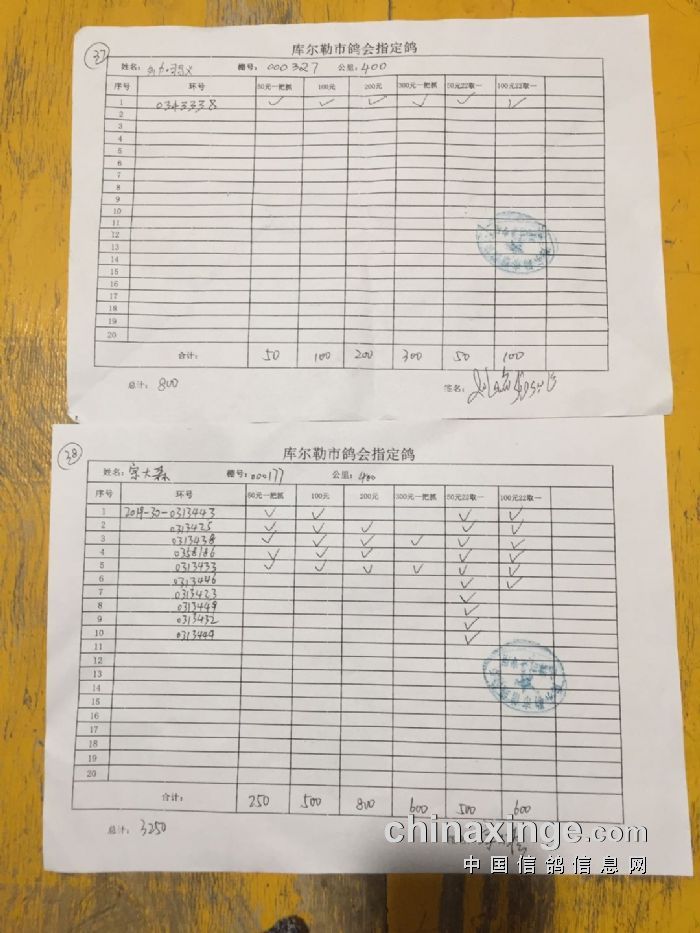 37
库尔勒市鸽会指定鸽
姓名: 棚号: 000327 公里: 400
序号 环号 50元一把抓 100元 200元 300元一把抓 50元22取一 100元22取一
1 0343338 ✓ ✓ ✓ ✓ ✓ ✓
2
3
4
5
6
7
8
9
10
11
12
13
14
15
16
17
18
19
20
合计: 50 100 200 300 50 100
总计: 800 签名:
38
库尔勒市鸽会指定鸽
姓名: 宗大森 棚号: 000177 公里: 400
序号 环号 50元一把抓 100元 200元 300元一把抓 50元22取一 100元22取一
1 2019-30-0313443 ✓ ✓ ✓ ✓
2 0313425 ✓ ✓ ✓ ✓ ✓
3 0313438 ✓ ✓ ✓ ✓ ✓ ✓
4 0358186 ✓ ✓ ✓ ✓ ✓
5 0313433 ✓ ✓ ✓ ✓ ✓ ✓
6 0313446 ✓ ✓
7 0313423 ✓
8 0313449 ✓
9 0313432 ✓
10 0313444 ✓
11
12
13
14
15
16
17
18
19
20
合计: 250 500 800 600 500 600
总计: 3250
chinaxinge.com
中国信鸽信息网